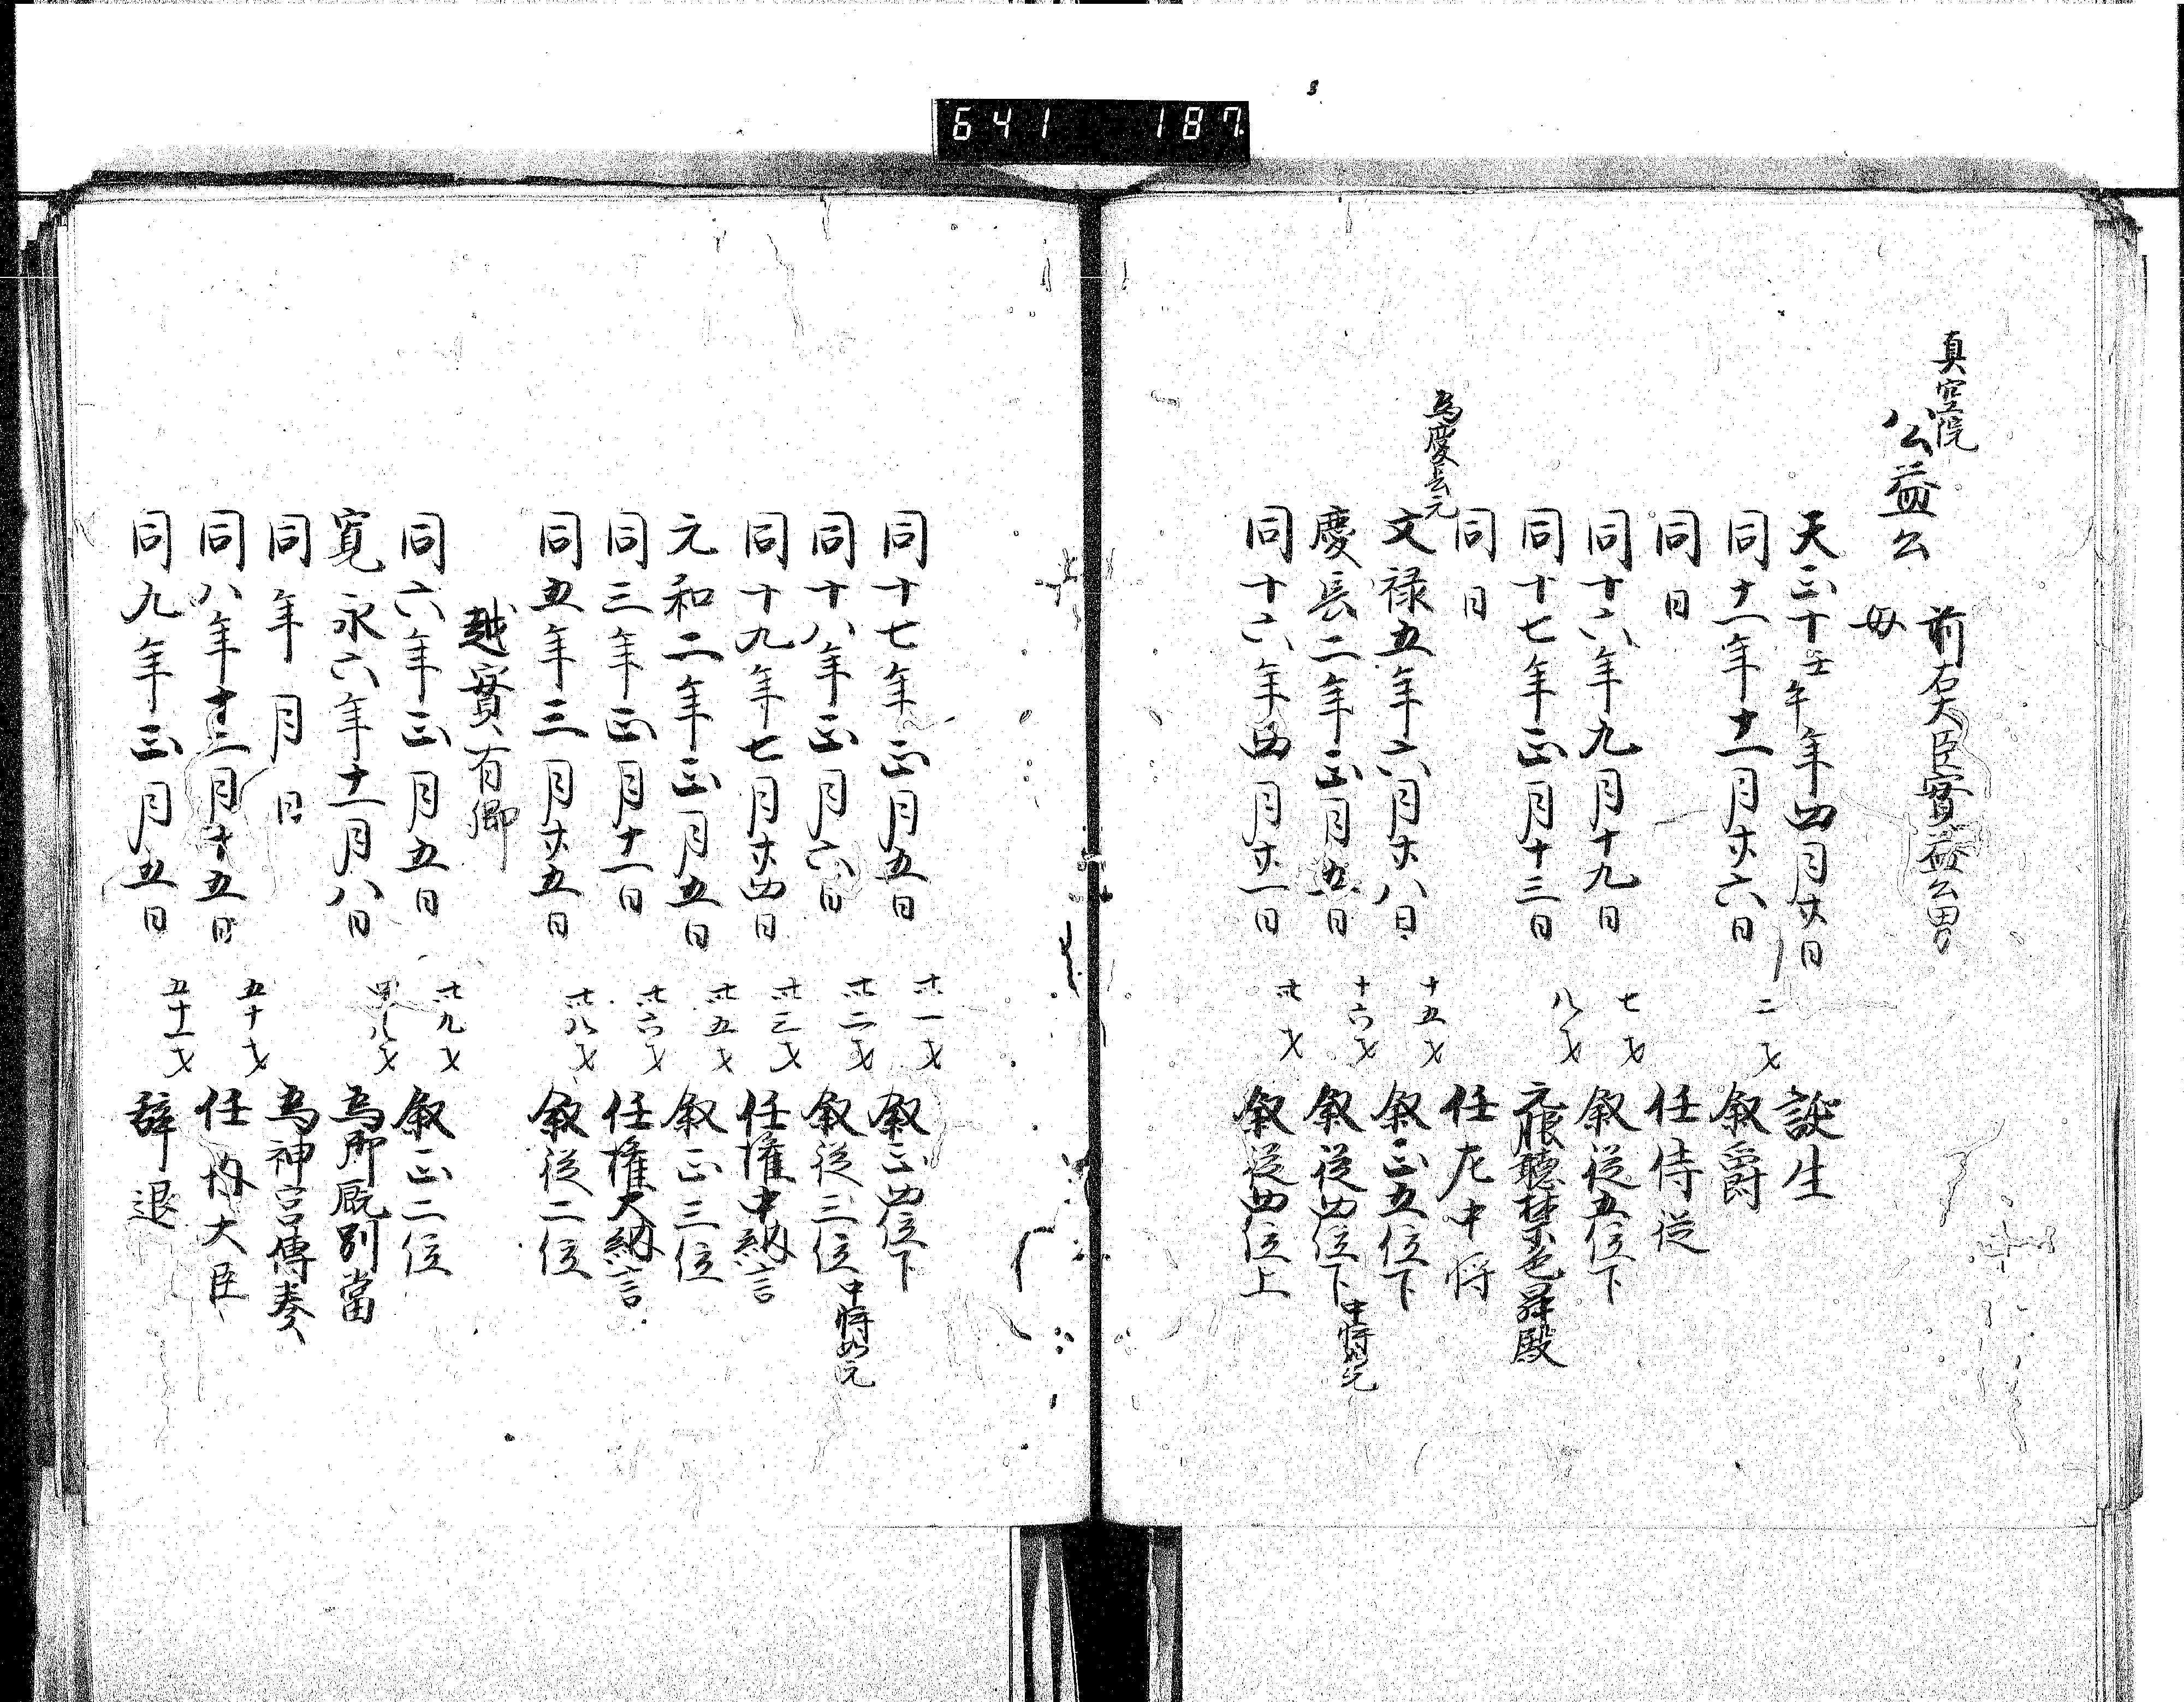 641 187
真空院
公益公
前右大臣實益公男
母
天正十壬午年四月廿日 誕生
同十一年十一月廿六日 二才 叙爵
同日 任侍従
同十六年九月十九日 七才 叙従五位下
同十七年正月十三日 八才 元服聴禁色昇殿
同日 任左中将
為慶長元
文禄五年六月廿八日 十五才 叙正五位下
慶長二年正月五日 十六才 叙従四位下 中将如元
同十六年四月廿一日 卅才 叙従四位上
同十七年正月五日 卅一才 叙正四位下
同十八年正月六日 卅二才 叙従三位 中将如元
同十九年七月廿四日 卅三才 任權中納言
元和二年正月五日 卅五才 叙正三位
同三年正月十一日 卅六才 任權大納言
同五年三月廿五日 卅八才 叙従二位
越實有卿
同六年正月五日 卅九才 叙正二位
寛永六年十一月八日 四十八才 為御厩別當
同年 月 日 為神宮傳奏
同八年十二月十五日 五十才 任内大臣
同九年正月五日 五十一才 辞退